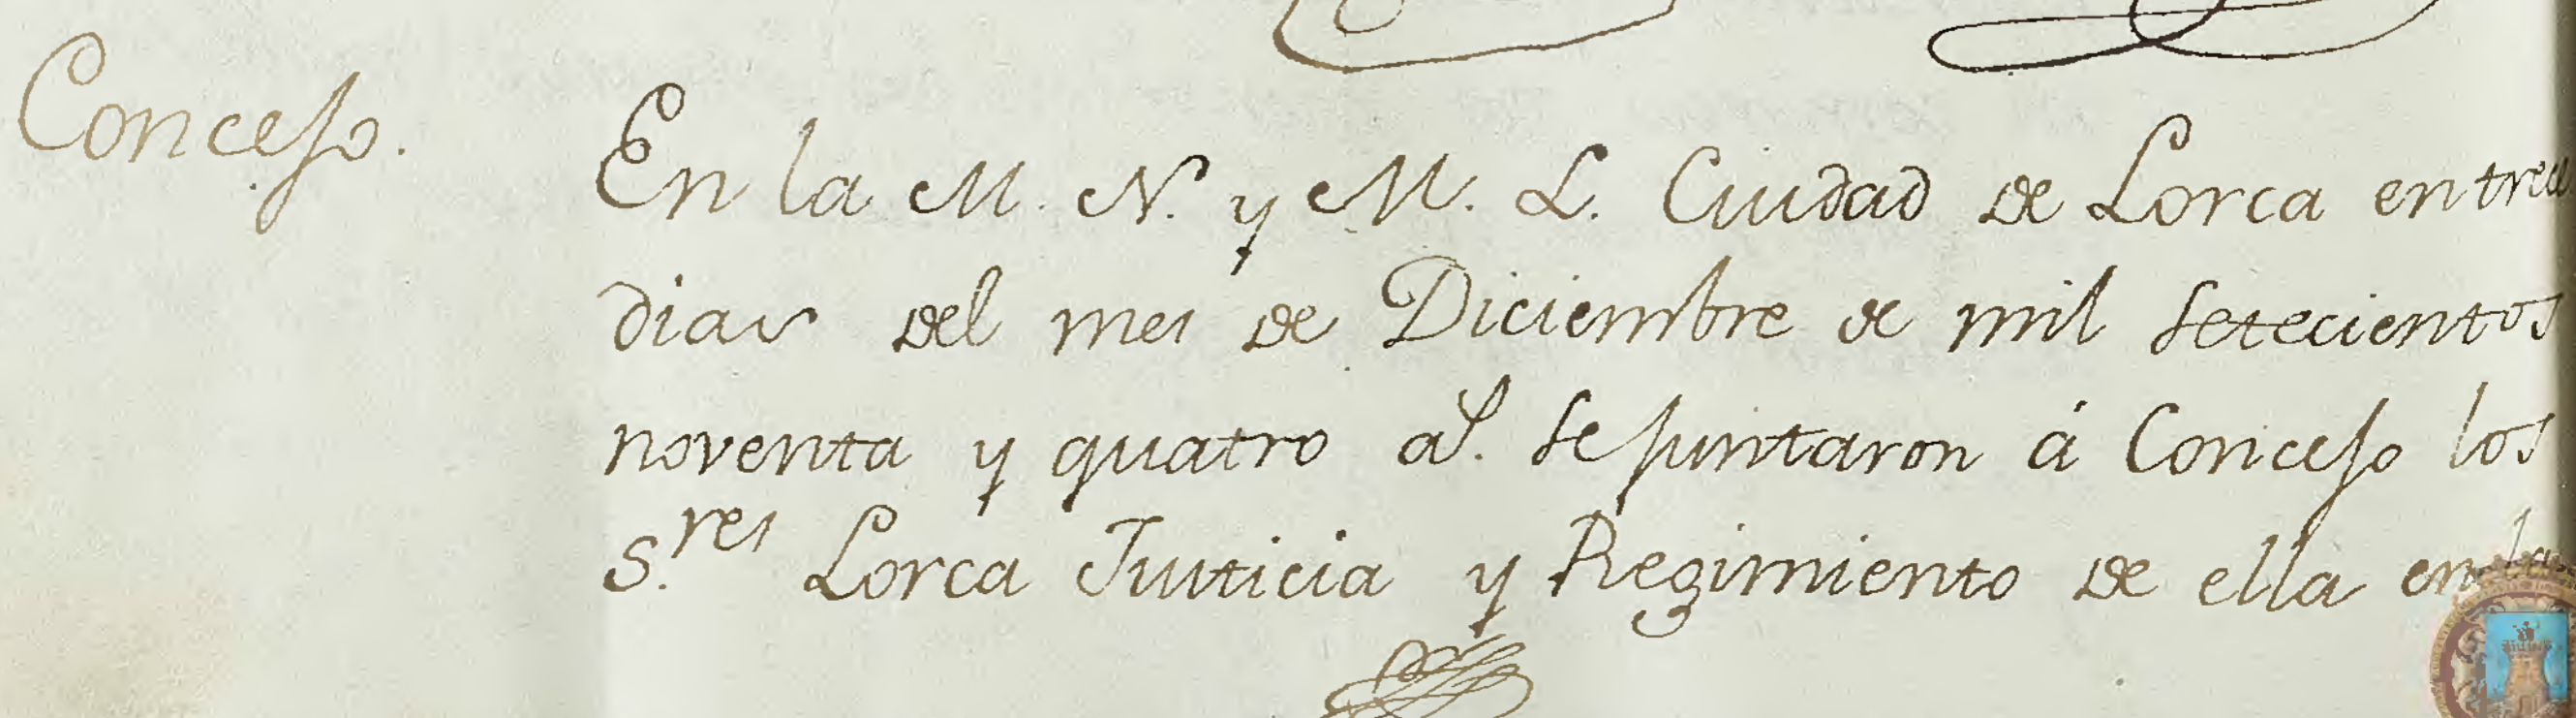 Concejo.
En la M. N. y M. L. Ciudad de Lorca en trece
dias del mes de Diciembre de mil setecientos
noventa y quatro as. se juntaron á Concejo los
S.res Lorca Justicia y Regimiento de ella en la